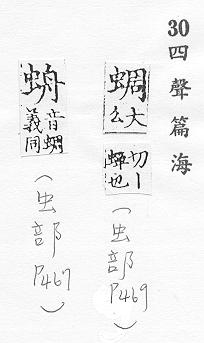 30四聲篇海
蜩 大么切丨蟬也(虫部P469)
音蜩義同(虫部P467)